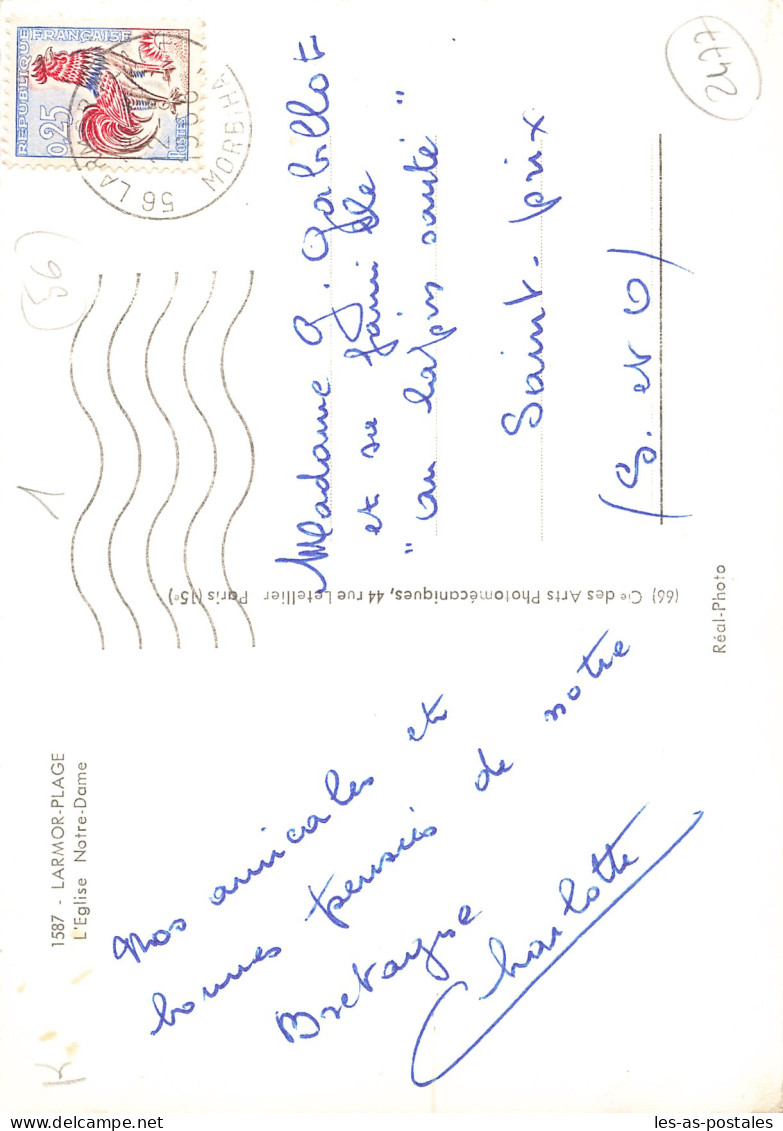 1587 - LARMOR-PLAGE
L'Eglise Notre-Dame
Nos amicales et
bonnes pensées de notre
Bretagne
Charlotte
(66) Cie des Arts Photomécaniques, 44 rue Letellier Paris (15e)
Réal-Photo
REPUBLIQUE FRANÇAISE
0,25
POSTES
56 LARMOR
MORBIHA
Madame G. Gabillot
et sa famille
"au lapin sauté"
Saint-prix
(S. et O)
2477
(56)
1
K
les-as-postales